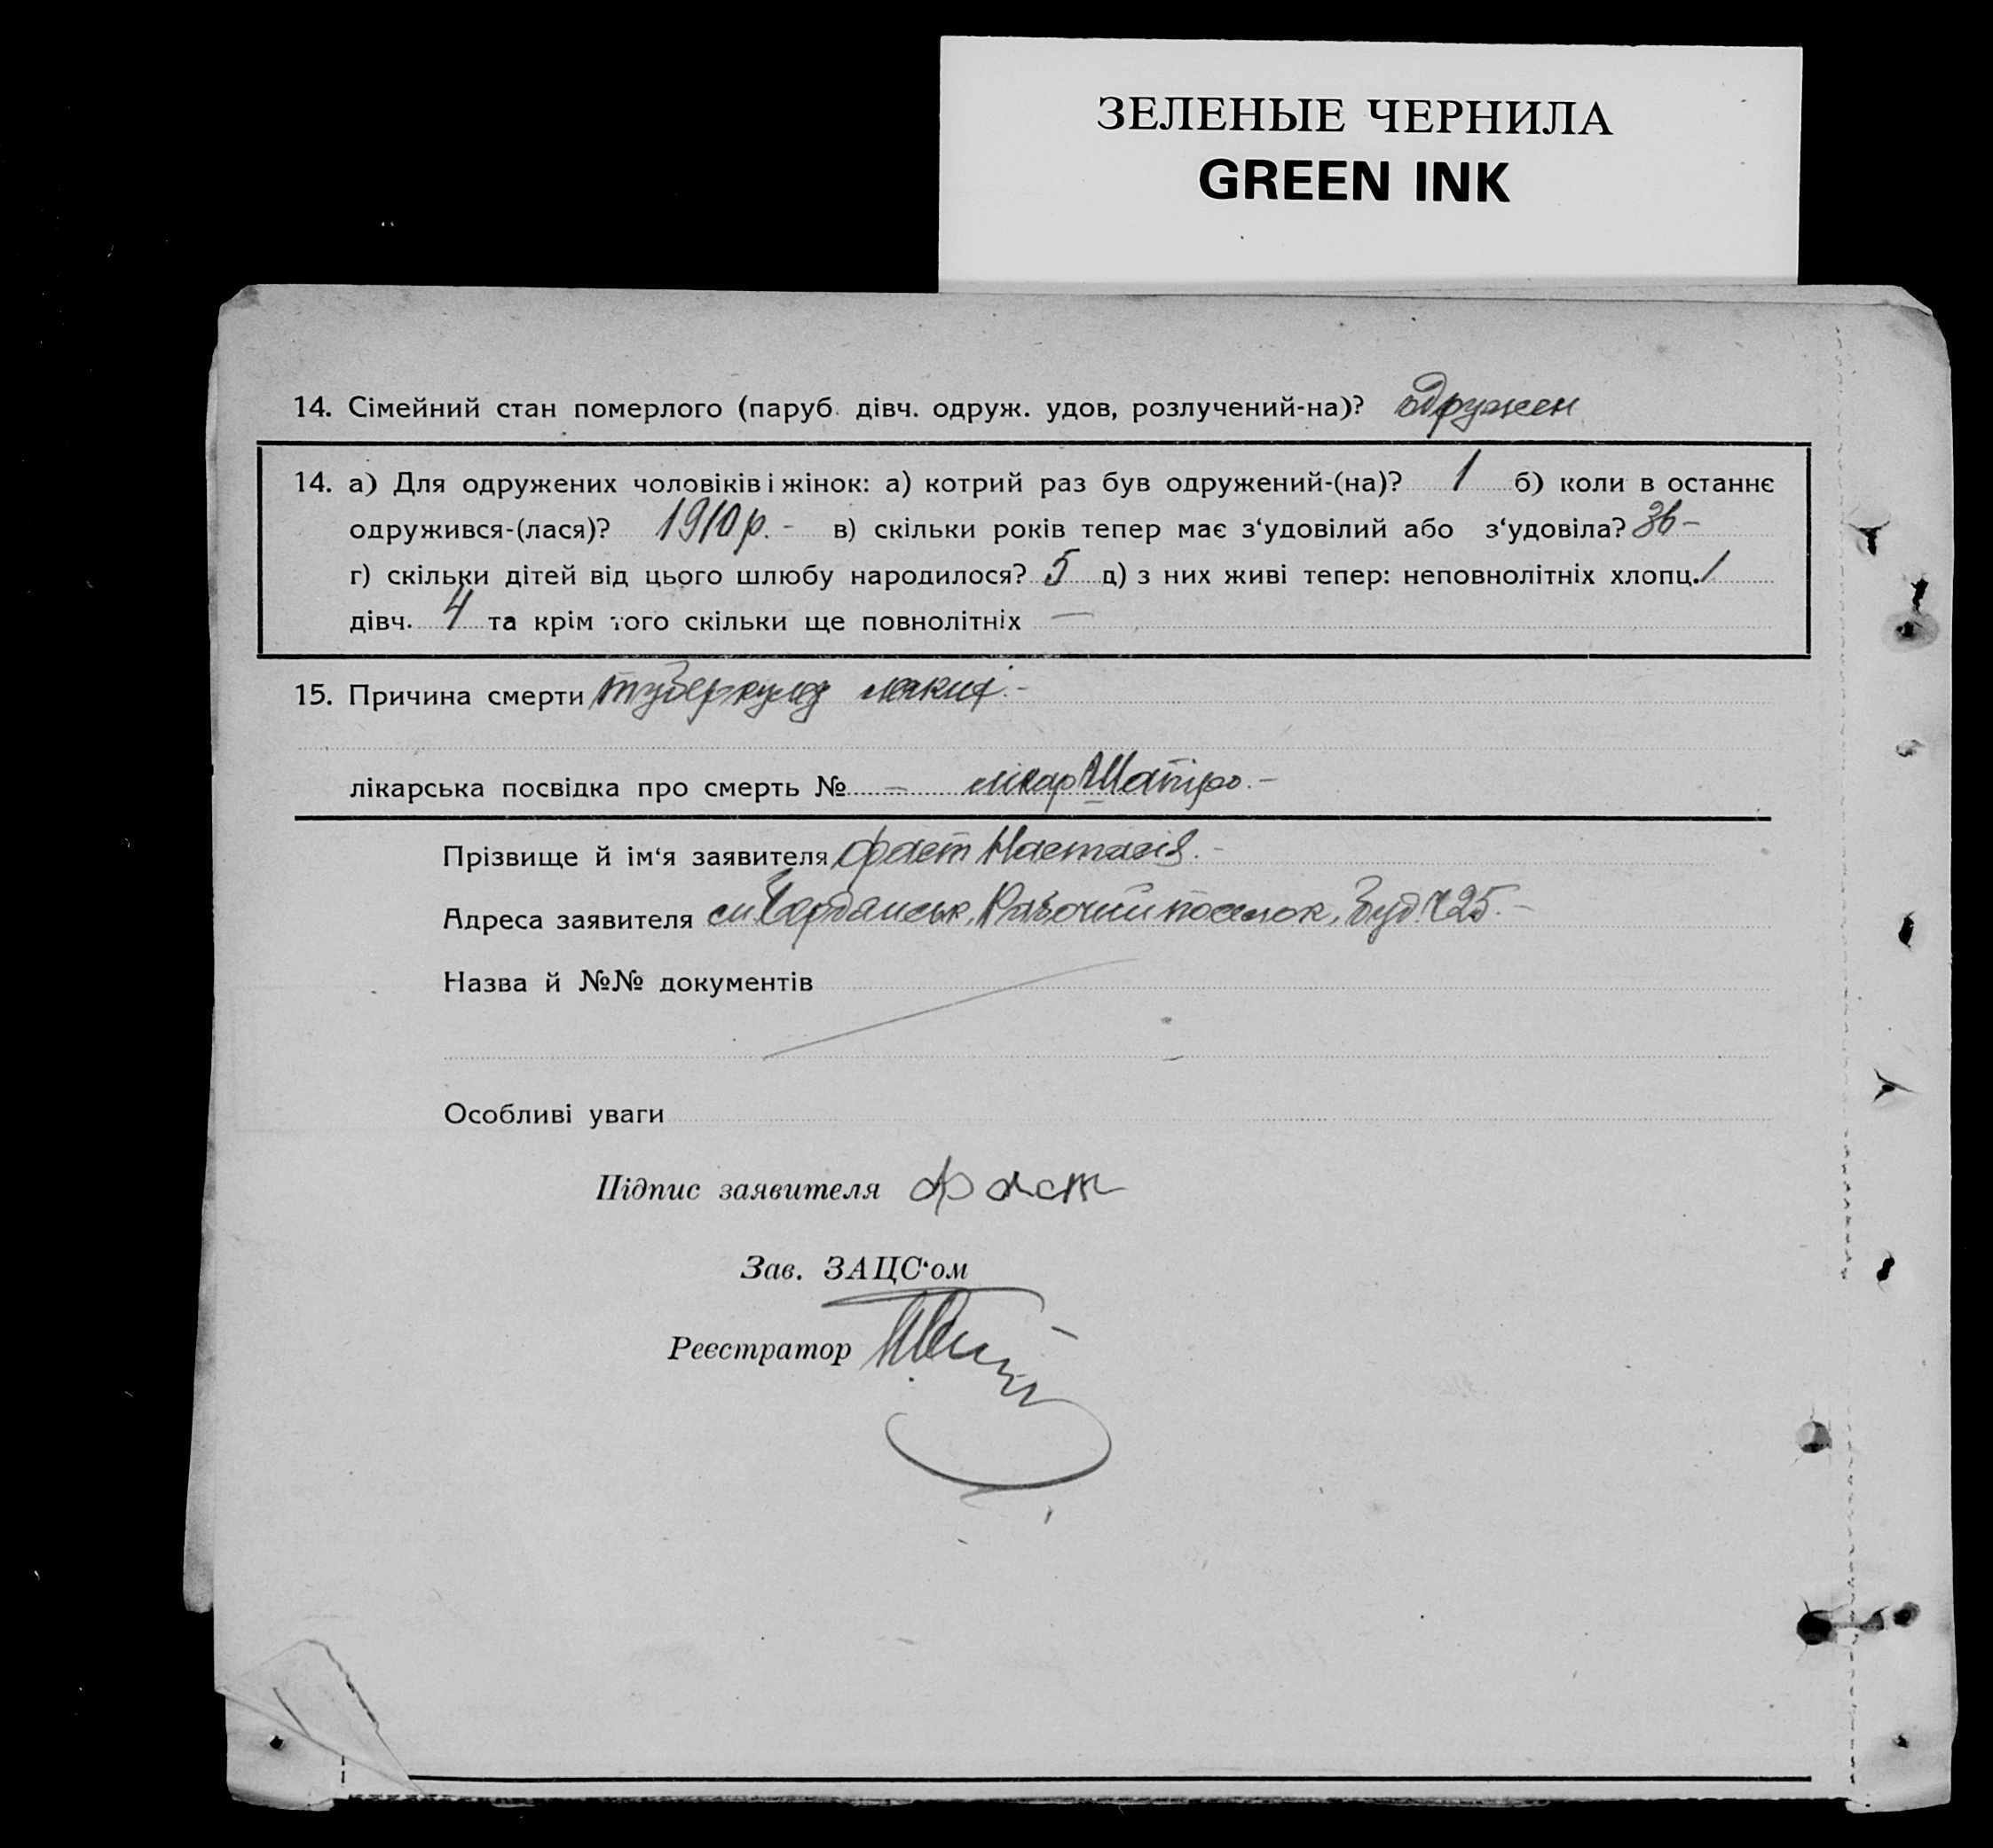 ЗЕЛЕНЫЕ ЧЕРНИЛА
GREEN INK
14. Сімейний стан померлого (паруб. дівч. одруж. удов, розлучений-на)? одружен
14. а) Для одружених чоловіків і жінок: а) котрий раз був одружений-(на)? 1 б) коли в останнє
одружився-(лася)? 1910 р. - в) скільки років тепер має з‘удовілий або з‘удовіла? 36 -
г) скільки дітей від цього шлюбу народилося? 5 д) з них живі тепер: неповнолітніх хлопц. 1
дівч. 4 та крім того скільки ще повнолітніх —
15. Причина смерти туберкулез -
лікарська посвідка про смерть № - лікар Шапіро. -
Прізвище й ім‘я заявителя Фаст Настасія. -
Адреса заявителя Рабочий поселок, буд. №25. -
Назва й №№ документів
Особливі уваги
Підпис заявителя Фаст
Зав. ЗАЦС‘ом
Реєстратор